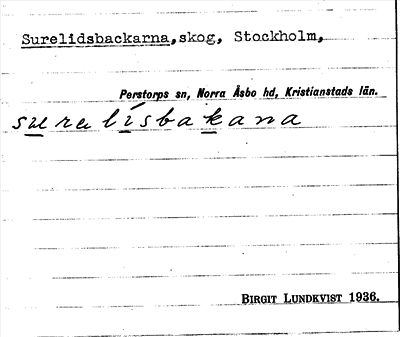 Surelidsbackarna, skog, Stockholm,
Perstorps sn, Norra Åsbo hd, Kristianstads län.
surelísbakana
BIRGIT LUNDKVIST 1936.